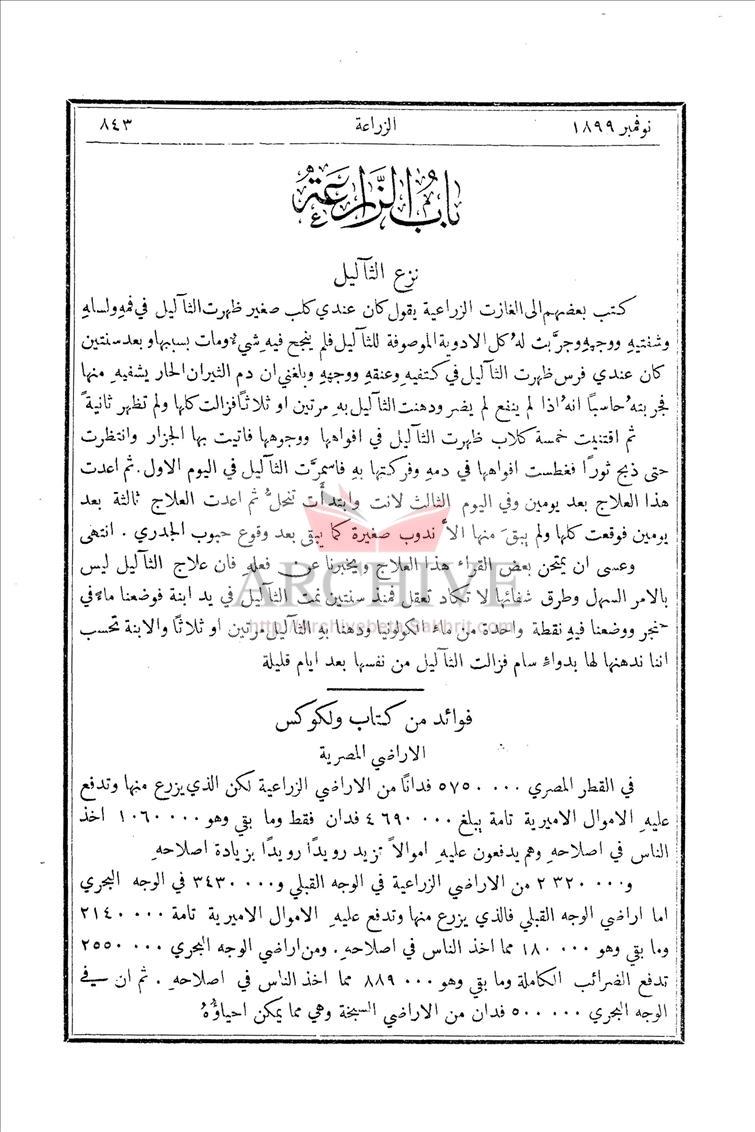 نوفمبر ١٨٩٩ الزراعة ٨٤٣
باب الزراعة
نزع الثآليل
كتب بعضهم الى الغازت الزراعية يقول كان عندي كلب صغير ظهرت الثآليل في فمهِ ولسانهِ
وشفتيهِ ووجههِ وجرَّبت لهُ كل الادوية الموصوفة للثآليل فلم ينجح فيهِ شيءٌ ومات بسببها وبعد سنتين
كان عندي فرس ظهرت الثآليل في كتفيهِ وعنقهِ ووجههِ وبلغني ان دم الثيران الحار يشفيهِ منها
فجربتهُ حاسباً انهُ اذا لم ينفع لم يضر ودهنت الثآليل بهِ مرتين او ثلاثاً فزالت كلها ولم تظهر ثانيةً
ثم اقتنيت خمسة كلاب ظهرت الثآليل في افواهها ووجوهها فاتيت بها الجزار وانتظرت
حتى ذبح ثوراً فغطست افواهها في دمهِ وفركتها بهِ فاسمرَّت الثآليل في اليوم الاول . ثم اعدت
هذا العلاج بعد يومين وفي اليوم الثالث لانت وابتدأَت تنحلُّ ثم اعدت العلاج ثالثة بعد
يومين فوقعت كلها ولم يبقَ منها الاَّ ندوب صغيرة كما يبقى بعد وقوع حبوب الجدري . انتهى
وعسى ان يمتحن بعض القراء هذا العلاج ويخبرنا عن فعلهِ فان علاج الثآليل ليس
بالامر السهل وطرق شفائها لا تكاد تعقل فمنذ سنتين نمت الثآليل في يد ابنة فوضعنا ماءً في
حنجر ووضعنا فيهِ نقطة واحدة من ماء الكولونيا ودهنا به الثآليل مرتين او ثلاثاً والابنة تحسب
اننا ندهنها لها بدواءٍ سام فزالت الثآليل من نفسها بعد ايام قليلة
فوائد من كتاب ولكوكس
الاراضي المصرية
في القطر المصري ٥٧٥٠٠٠٠ فداناً من الاراضي الزراعية لكن الذي يزرع منها وتدفع
عليهِ الاموال الاميرية تامة يبلغ ٤٦٩٠٠٠٠ فدان فقط وما بقي وهو ١٠٦٠٠٠٠ اخذ
الناس في اصلاحهِ وهم يدفعون عليهِ اموالاً تزيد رويداً رويداً بزيادة اصلاحهِ
و٢٣٢٠٠٠٠ من الاراضي الزراعية في الوجه القبلي و٣٤٣٠٠٠٠ في الوجه البحري
اما اراضي الوجه القبلي فالذي يزرع منها وتدفع عليهِ الاموال الاميرية تامة ٢١٤٠٠٠٠
وما بقي وهو ١٨٠٠٠٠ مما اخذ الناس في اصلاحهِ . ومن اراضي الوجه البحري ٢٥٥٠٠٠٠
تدفع الضرائب الكاملة وما بقي وهو ٨٨٩٠٠٠ مما اخذ الناس في اصلاحهِ . ثم ان في
الوجه البحري ٥٠٠٠٠٠ فدان من الاراضي السبخة وهي مما يمكن احياؤُهُ
ARCHIVE
http://Archivebeta.Sakhrit.com